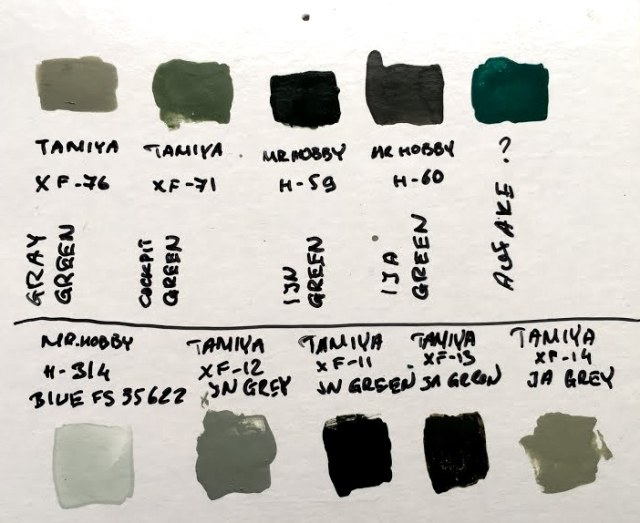 TAMIYA
XF-76
GRAY
GREEN
TAMIYA
XF-71
COCKPIT
GREEN
MR.HOBBY
H-59
IJN
GREEN
MR HOBBY
H-60
IJA
GREEN
AOTAKE ?
MR.HOBBY
H-314
BLUE FS 35622
TAMIYA
XF-12
JN GREY
TAMIYA
XF-11
JN GREEN
TAMIYA
XF-13
JA GREEN
TAMIYA
XF-14
JA GREY